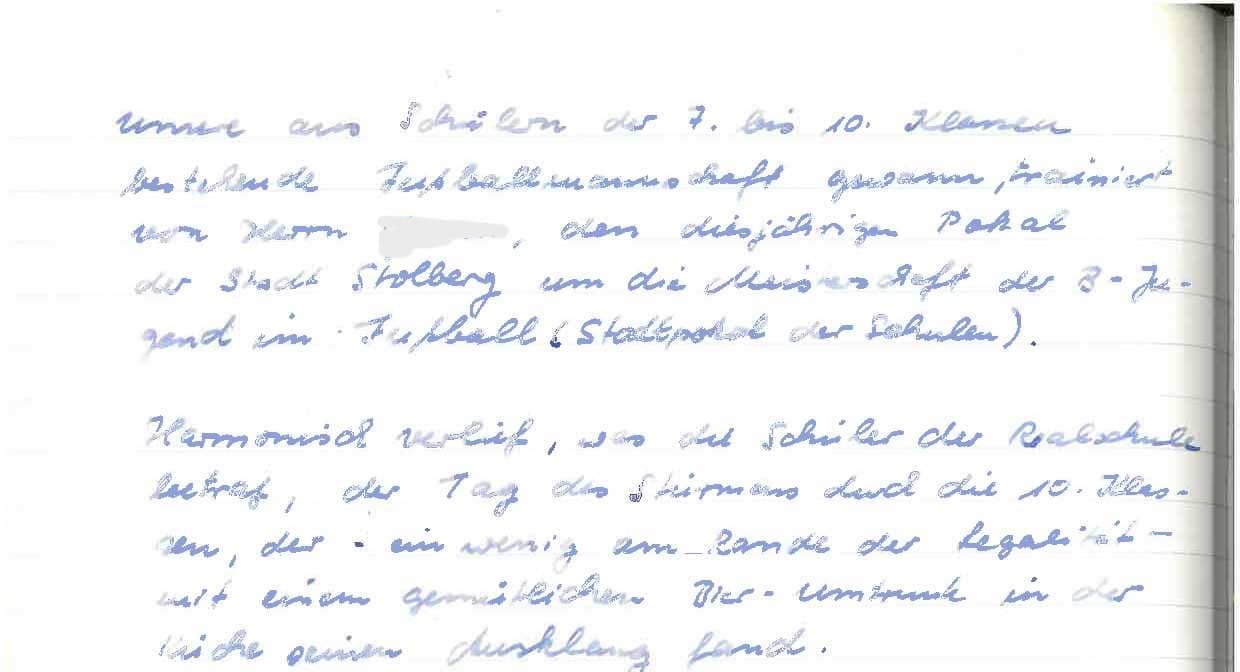 unsere aus Schülern der 7. bis 10. Klassen
bestehende Fußballmannschaft gewann, trainiert
von Herrn , den diesjährigen Pokal
der Stadt Stolberg um die Meisterschaft der B-Ju-
gend im Fußball (Stadtpokal der Schulen).
Harmonisch verlief, was die Schüler der Realschule
betraf, der Tag des Stürmens durch die 10. Klas-
sen, der - ein wenig am Rande der Legalität -
mit einem gemütlichen Bier-Umtrunk in der
Küche seinen Ausklang fand.